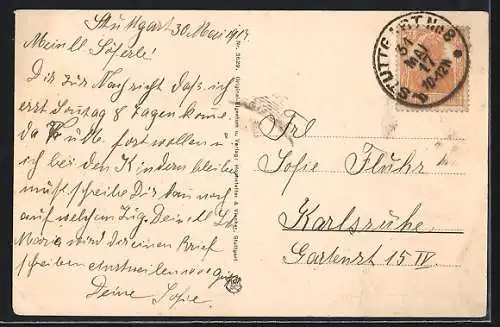 Stuttgart 30 Mai 1917.
Mein ll. Soferle!
Dir zur Nachricht dass ich
erst Sontag 8 tagen komme
da fort wollen u
ich bei den Kindern bleiben
muss schreibe Dir dann noch
auf welchen Zug. Deine ll.
Marie wird dir einen Brief
schreiben einstweilen
Deine Sofie.
STUTTGART No 8
31
MAI
17
10-12N
Frl
Sofie Fluhr
Karlsruhe
Gartenst 15 IV.